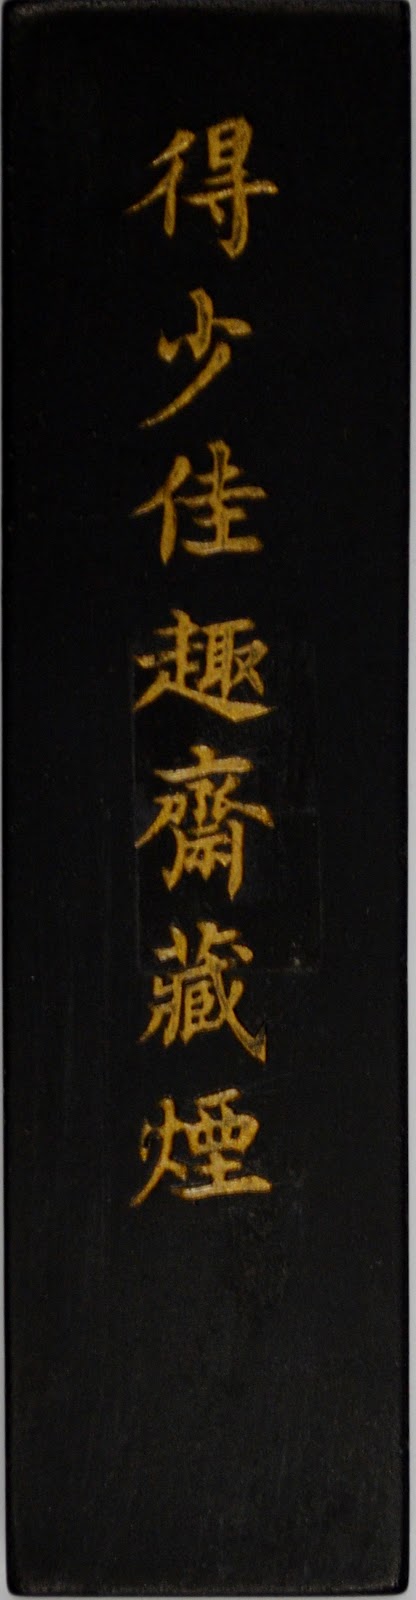 得少佳趣齋藏煙